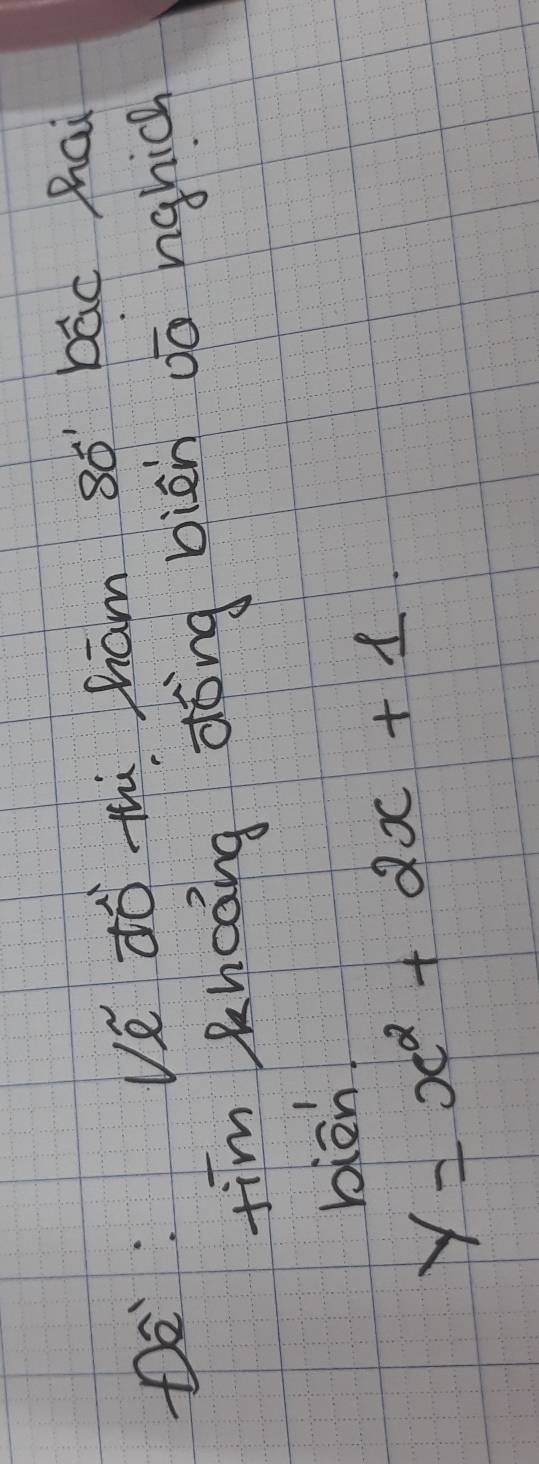 Đề: Vẽ đồ thị hàm số bậc hai
tìm khoảng đồng biến và nghịch
biến.
y = x² + 2x + 1.